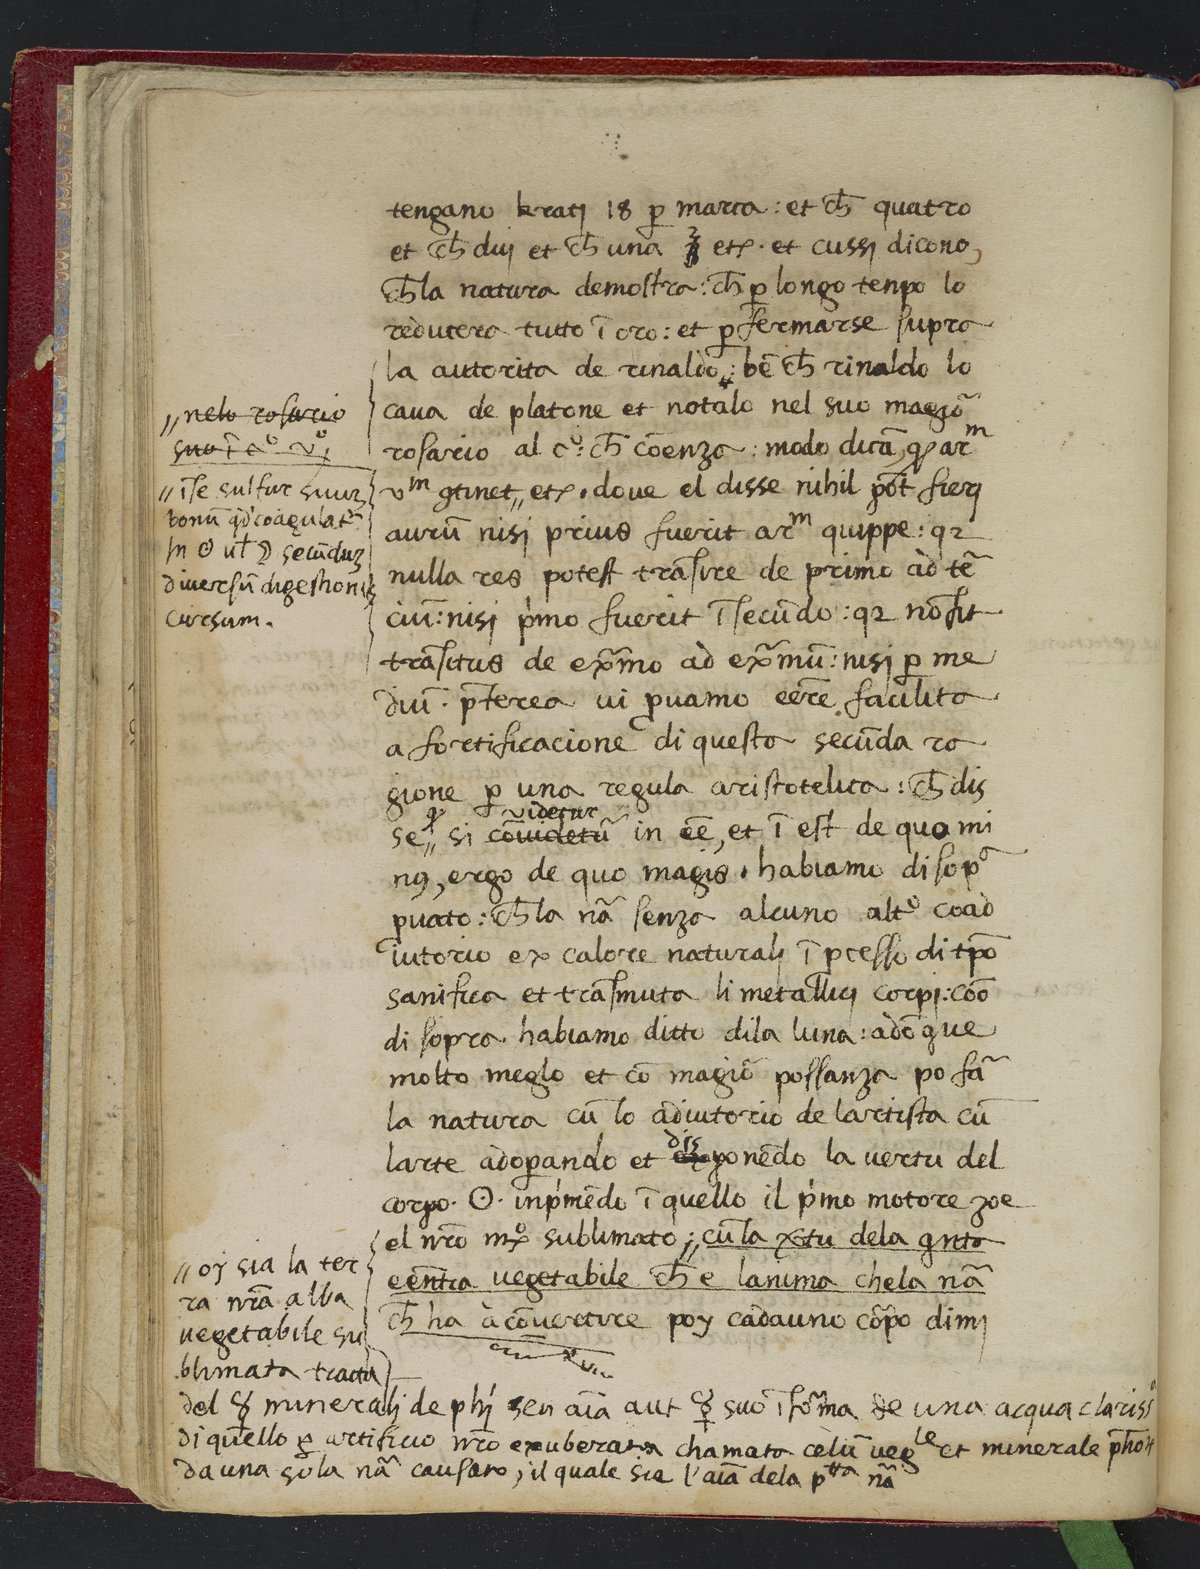 tengano kratj 18 ꝑ marca : et ch̄ quatro
et ch̄ duj et ch̄ una et cussj dicono,
ch̄ la natura demostra : ch̄ ꝑ longo tenpo lo
reducera tutto ī oro : et ꝑ fermarse supra
la autorita de rinaldo : bē ch̄ rinaldo lo
caua de platone et notalo nel suo magiō
rosario al cº : ch̄ cōenza : modo dicā, arᵐ
vᵐ ꝯtinet,, etc. doue el disse nihil pōt fierj
aurū nisj prius fuerit arᵐ quippe : qꝛ
nulla res potest trāsire de primo ad tē
ciū : nisj p'mo fuerit ī secūdo : qꝛ nō fit
trāsitus de exmo ad exmū : nisj ꝑ me
diū. pterea ui ꝓuamo eēre facilita
a fortificacione di questa secūda ra
gione ꝑ una regula aristotelica : ch̄ dis
videtur
se,, si cōuidetū in eē, et ī est de quo mi
nꝰ, ergo de quo magis. habiamo di sopᵃ
ꝓuato : ch̄ la nā senza alcuno altº coad
iutorio ex calore naturalj ī ꝓcesso di tp̄o
sanifica et trāsmuta li metallicj corpj : coō
di sopra habiamo ditto dila luna : adōque
molto meglo et cō magiō possanza po fā
la natura cū lo adiutorio de lartista cū
dis
larte adoꝑando et ponēdo la uertu del
corpo. ☉. inp'mēdo ī quello il p'mo motore zoe
el nr̄o sublimato ; cū la dela qnta
eēntia uegetabile ch̄ e lanima che la nā
ch̄ ha a cōuertire poy cadauno cōpo dimj
,, nelo rosario
suo ī cº vjº
,, īse sulfur suuꝫ
bonū qd coagulatᵉ
in ☉ ul ☽ secūduꝫ
diuersū digestionis
cursum.
,, oy sia la ter
ra nr̄a alba
uegetabile su
blimata tracta
del ☿ mineralj de phj seu aīa aut ☿ suo ī forma de una acqua clarissᵃ
di quello ꝑ artificio nr̄o exuberata chamata celū vegˡᵉ et minerale
da una sola nā causaro, il quale sia l'aīa dela pᵗᵗᵃ nā